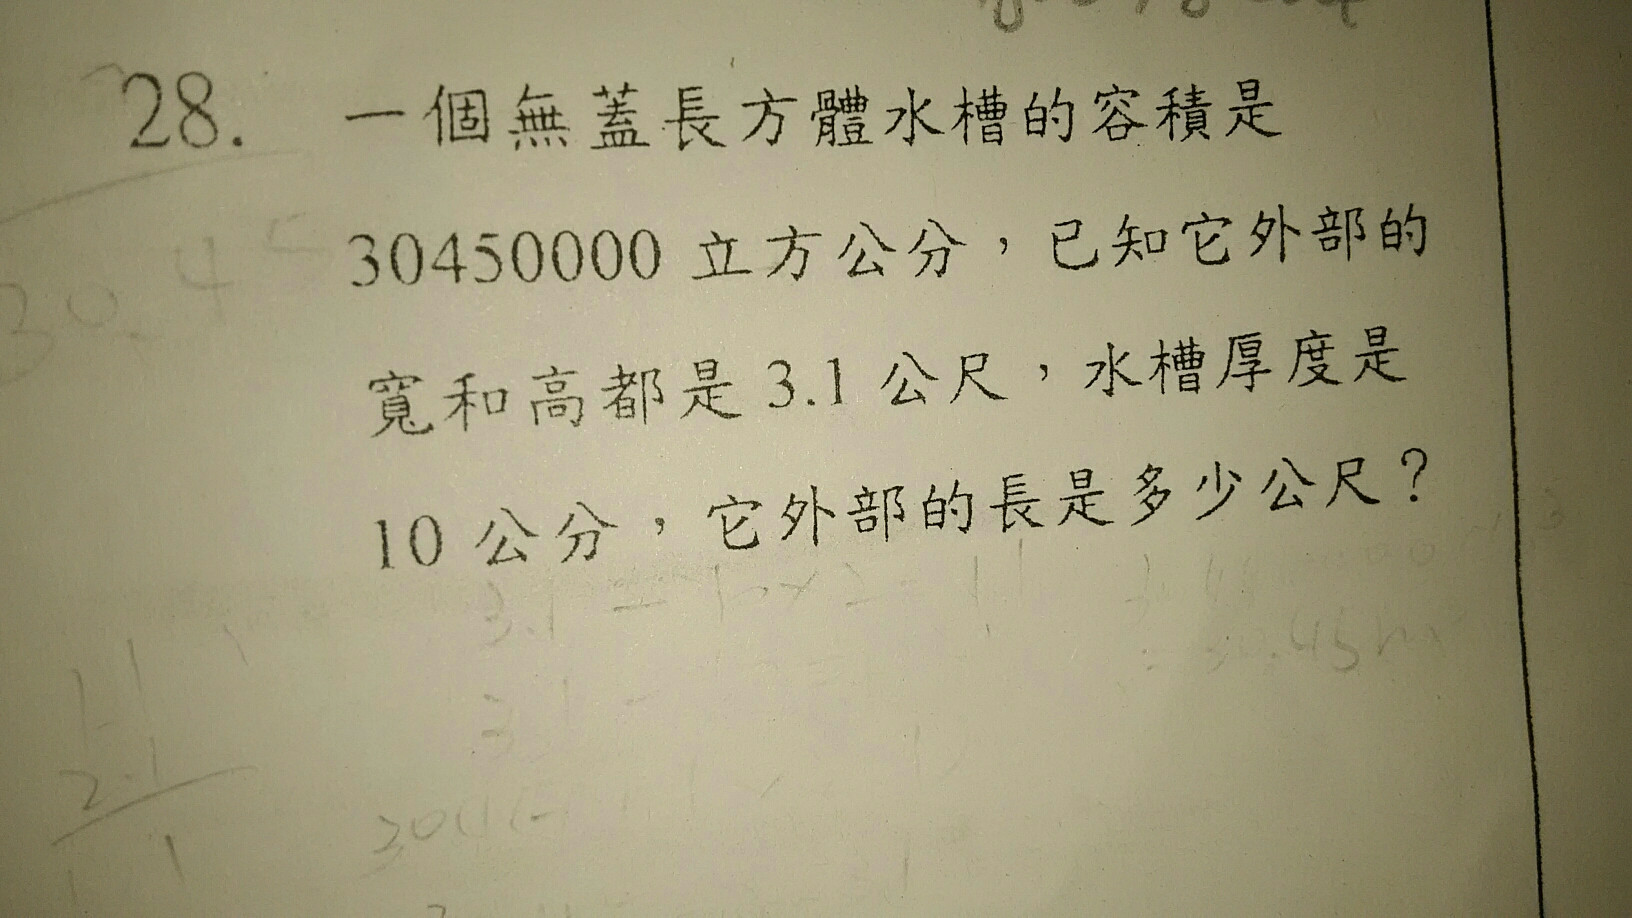 28. 一個無蓋長方體水槽的容積是
30450000 立方公分，已知它外部的
寬和高都是 3.1 公尺，水槽厚度是
10 公分，它外部的長是多少公尺？